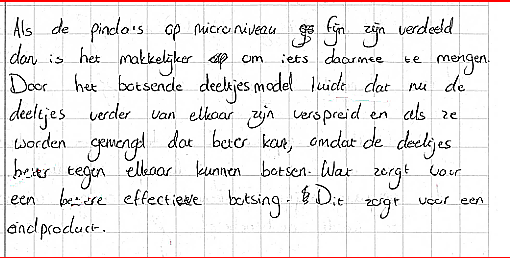 Als de pinda's op microniveau fijn zijn verdeeld
dan is het makkelijker om iets daarmee te mengen.
Door het botsende deeltjesmodel luidt dat nu de
deeltjes verder van elkaar zijn verspreid en als ze
worden gemengd dat beter kan, omdat de deeltjes
beter tegen elkaar kunnen botsen. Wat zorgt voor
een betere effectieve botsing. Dit zorgt voor een
eindproduct.